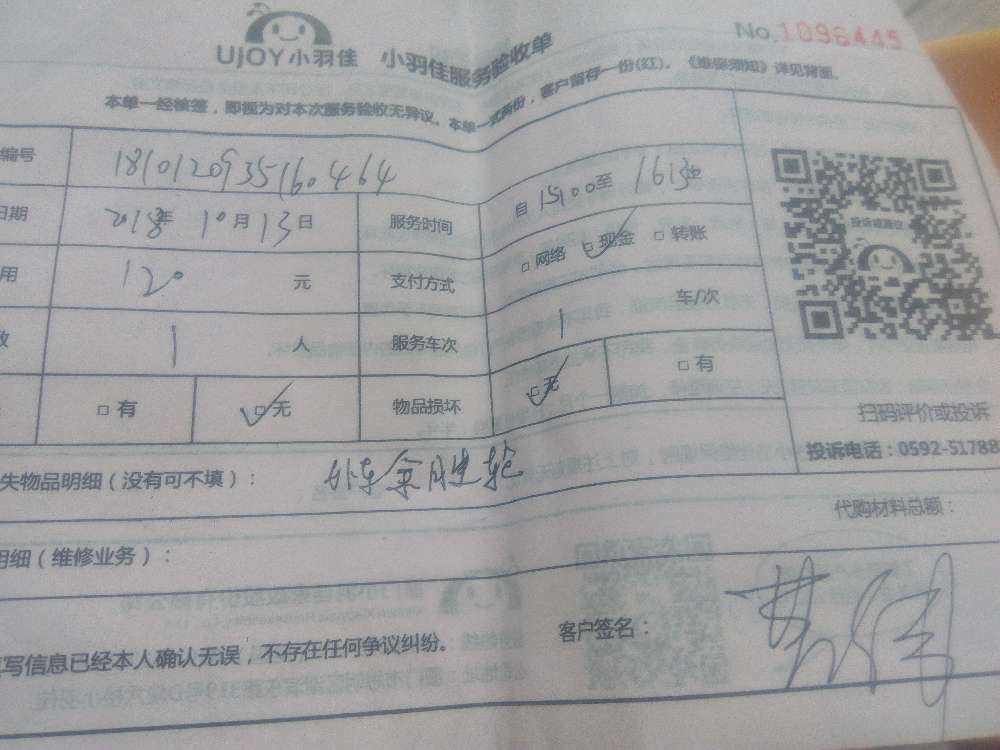 No.1096445
UJOY小羽佳 小羽佳服务验收单
本单一经核签,即视为对本次服务验收无异议。本单一式两份,客户留存一份(红)。《维保须知》详见背面。
编号 181012093516464
日期 2018年 10月13日 服务时间 自 15:00至 16:30
用 120 元 支付方式 □网络 ☑现金 □转账
数 1 人 服务车次 1 车/次
□有 ☑无 物品损坏 ☑无 □有
投诉或建议
扫码评价或投诉
投诉电话:0592-51788
失物品明细(没有可不填):
代购材料总额:
明细(维修业务):
填写信息已经本人确认无误,不存在任何争议纠纷。
客户签名: